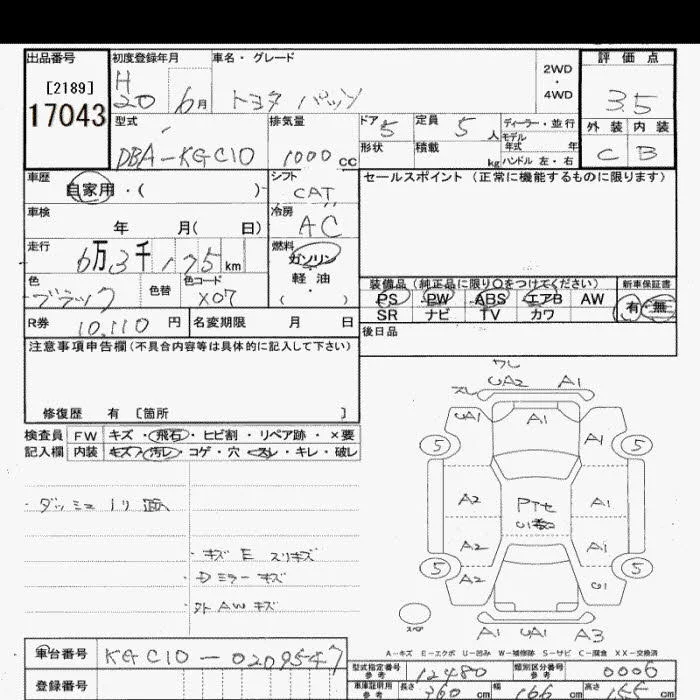 出品番号 初度登録年月 車名・グレード 評価点
[2189] H 2WD
17043 20 6月 トヨタ パッソ ・ 3.5
4WD
型式 排気量 ドア 5 定員 5人 ディーラー・並行 外装 内装
DBA-KGC10 1000cc 形状 積載 kg モデル年式 年 C B
ハンドル 左・右
車歴 自家用・( ) シフト CAT セールスポイント(正常に機能するものに限ります)
車検 年 月( 日) 冷房 AC
走行 6万3千175km 燃料 ガソリン
軽油
( )
色 ブラック 色替 色コード X07 装備品(純正品に限り○をつけてください) 新車保証書
PS PW ABS エアB AW 有・無
R券 10,110円 名変期限 月 日 SR ナビ TV カワ
注意事項申告欄(不具合内容等は具体的に記入して下さい) 後日品
修復歴 有 [箇所 ]
UA2 A1
検査員 FW キズ・飛石・ヒビ割・リペア跡・×要
記入欄 内装 キズ・汚レ・コゲ・穴・スレ・キレ・破レ
UA1 A1 A1
5 5
A2 A1
A2 A1
5 5
A2
A1 UA1 A3
スペア
・キズ E スリキズ
・Dミラー キズ
AW キズ
A-キズ E-エクボ U-凹み W-補修跡 S-サビ C-腐食 XX-交換済
車台番号 KGC10-0209547 型式指定番号 参考 12480 類別区分番号 参考 0006
登録番号 車庫証明用 参考 長さ 360cm 幅 166cm 高さ cm